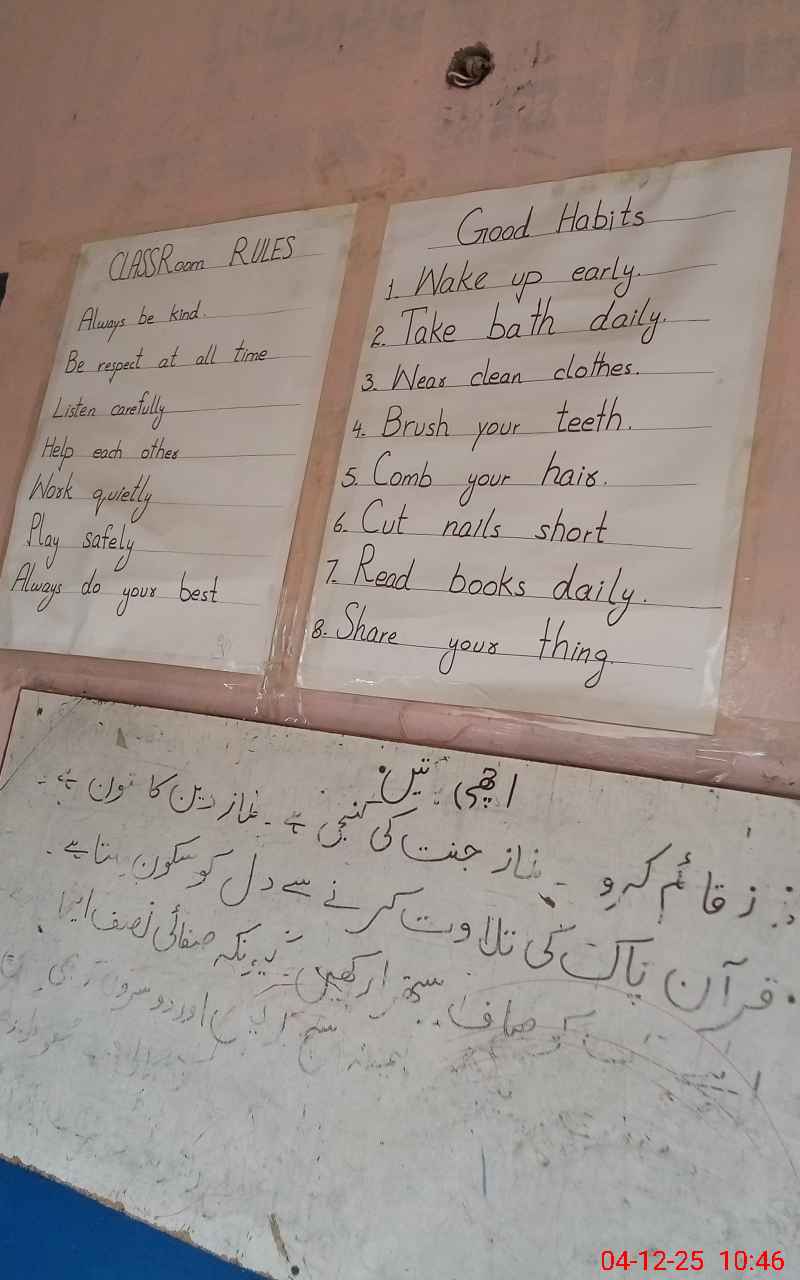 CLASSRoom RULES
Always be kind.
Be respect at all time
Listen carefully
Help each other
Work quietly
Play safely
Always do your best
Good Habits
1. Wake up early.
2. Take bath daily.
3. Wear clean clothes.
4. Brush your teeth.
5. Comb your hair.
6. Cut nails short
7. Read books daily.
8. Share your thing.
اچھی
قائم کرو ۔ جنت کی کنجی ہے ۔ نماز دین کا ہے ۔
قرآن پاک کی تلاوت کرنے سے دل کو سکون ہے ۔
صاف ستھرا رکھیں کیونکہ صفائی نصف
اور دوسروں
04-12-25 10:46